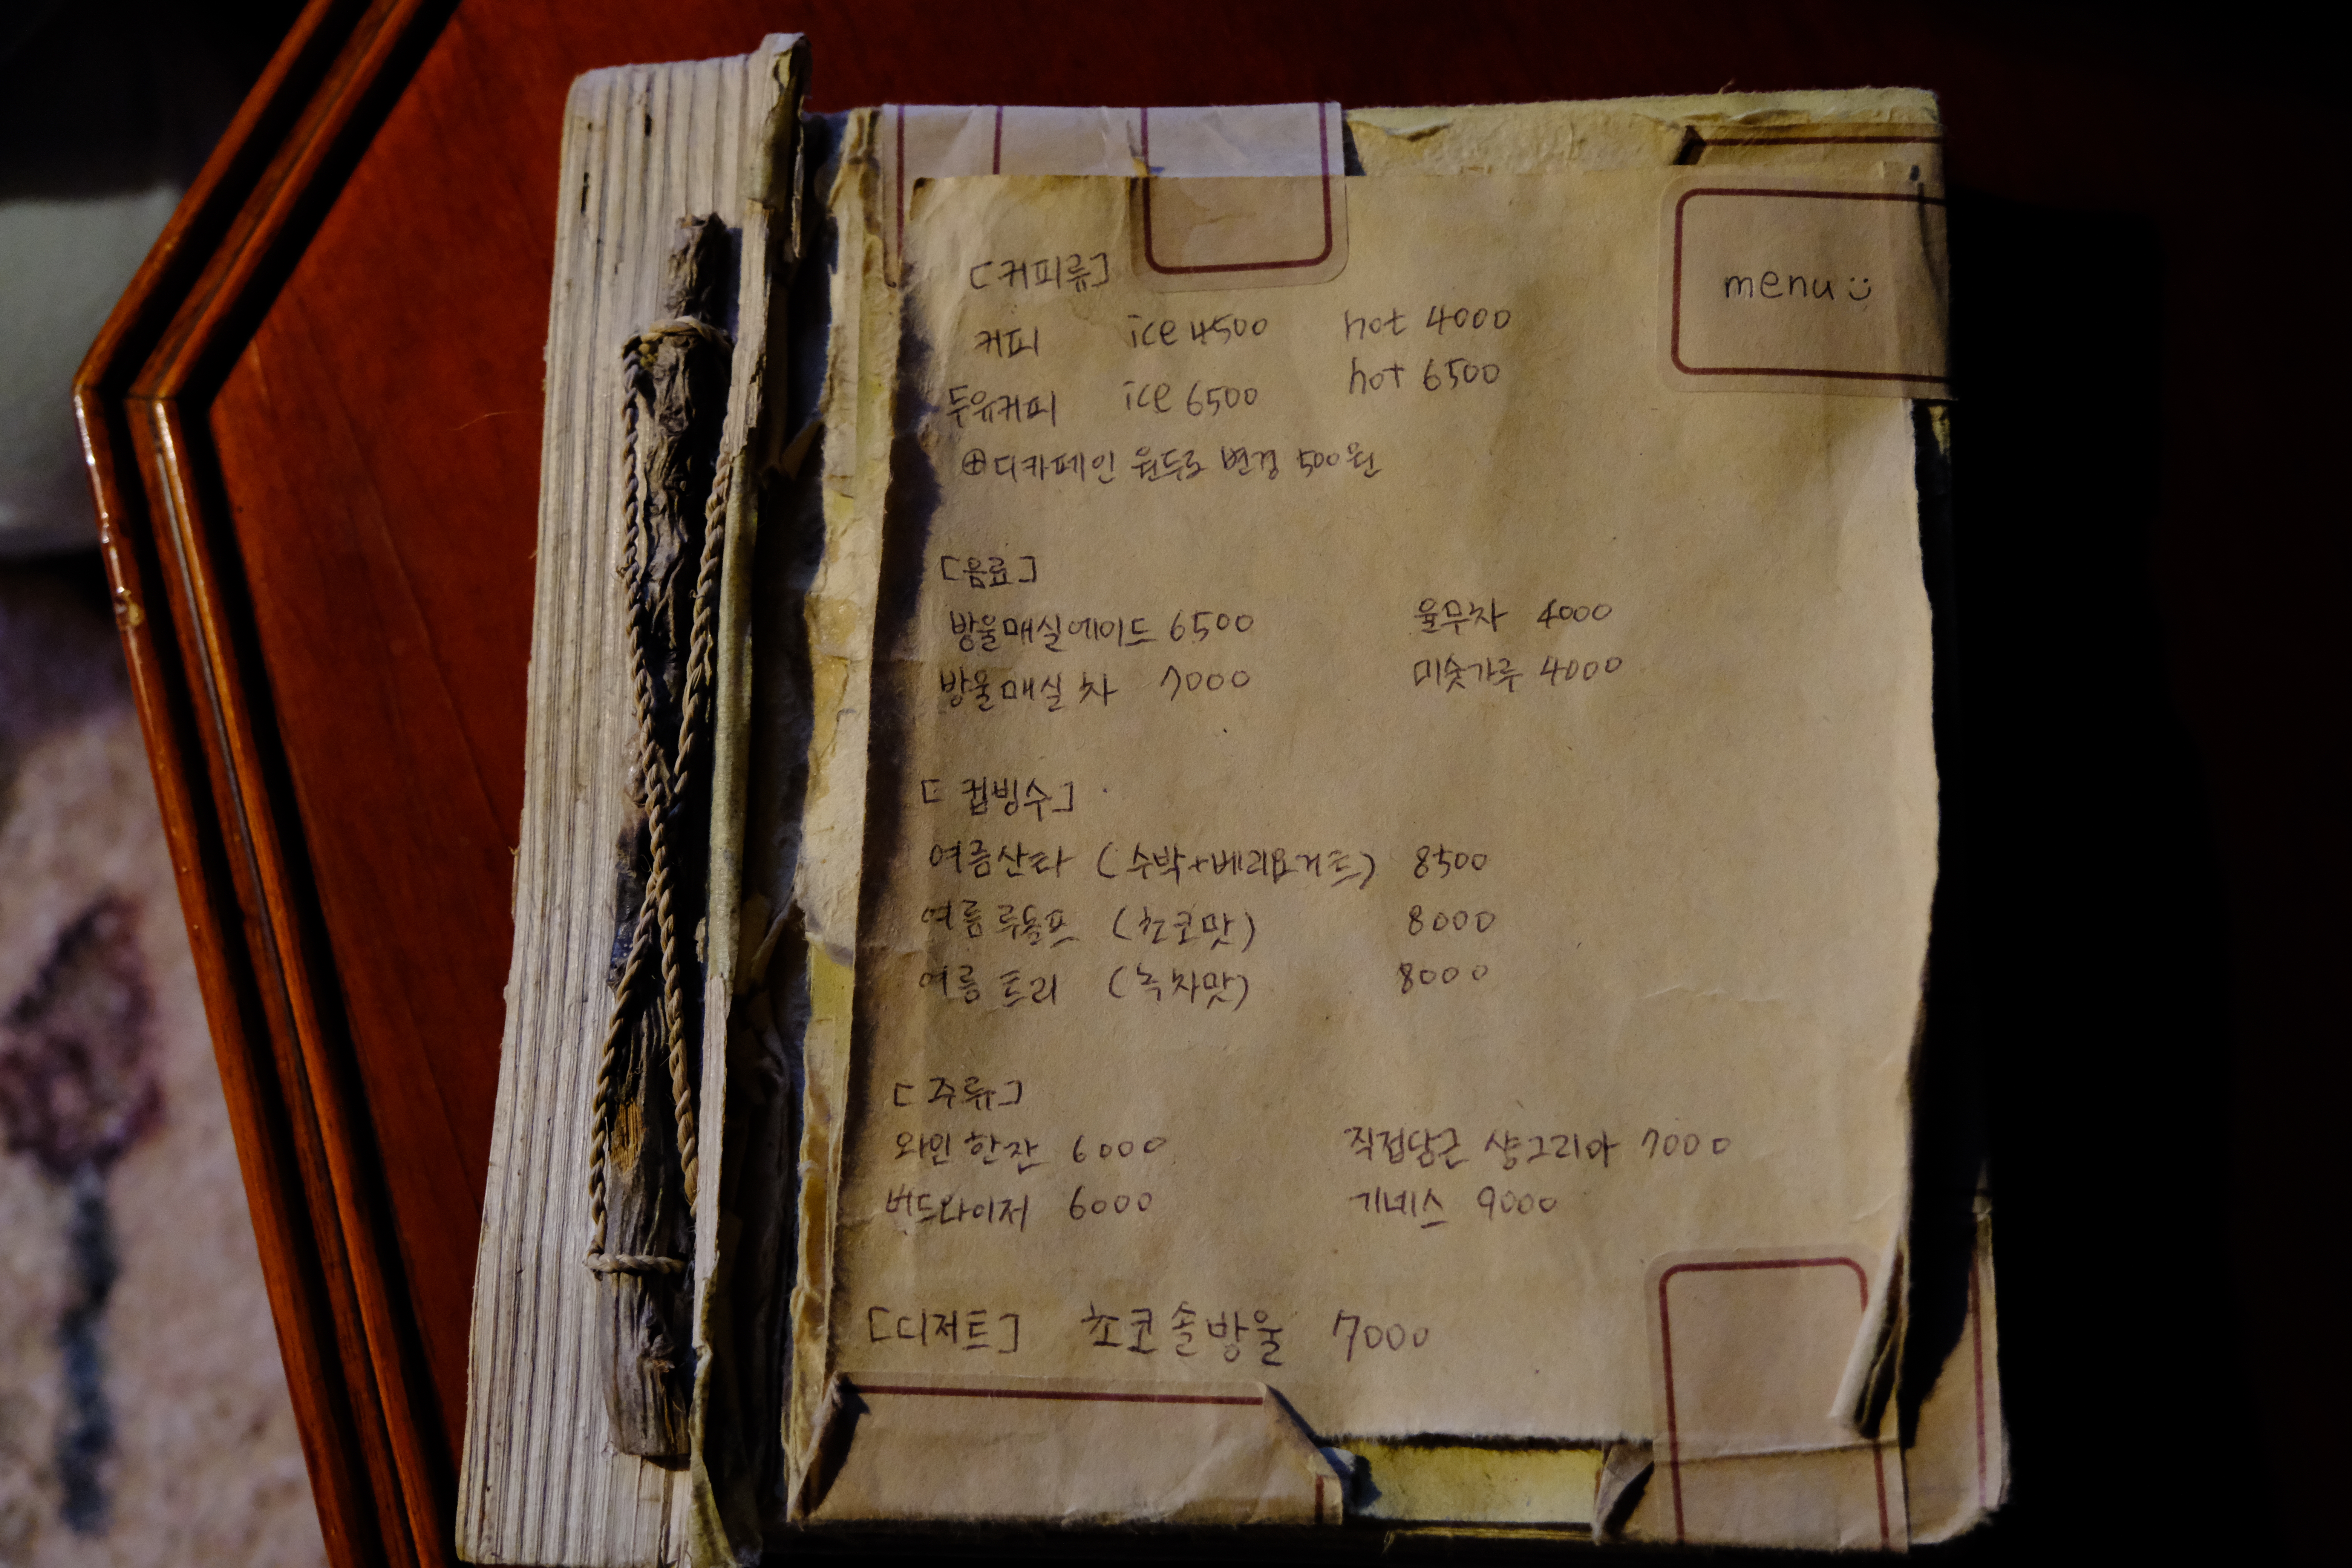 menu
[커피류]
커피 ice 4500 hot 4000
두유커피 ice 6500 hot 6500
⊕디카페인 원두로 변경 500원
[음료]
방울매실에이드 6500 율무차 4000
방울매실차 7000 미숫가루 4000
[컵빙수]
여름산타 (수박+베리요거트) 8500
여름 루돌프 (초코맛) 8000
여름 트리 (녹차맛) 8000
[주류]
와인 한잔 6000 직접담근 샹그리아 7000
버드와이저 6000 기네스 9000
[디저트] 초코솔방울 7000